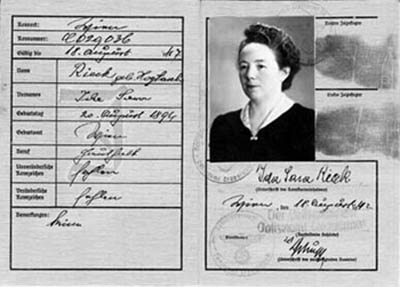 Kennort: Wien
Kennummer: C D29036
Gültig bis 18. August 1947
Name Rieck geb.
Vornamen Ida Sara
Geburtstag 20. August 1894
Geburtsort Wien
Beruf Haushalt
Unveränderliche Kennzeichen fehlen
Veränderliche Kennzeichen fehlen
Bemerkungen: keine
Rechter Zeigefinger
Linker Zeigefinger
Ida Sara Rieck
(Unterschrift des Kennkarteninhabers)
Wien, den 18. August 1942
Der
(Unterschrift des ausfertigenden Beamten)